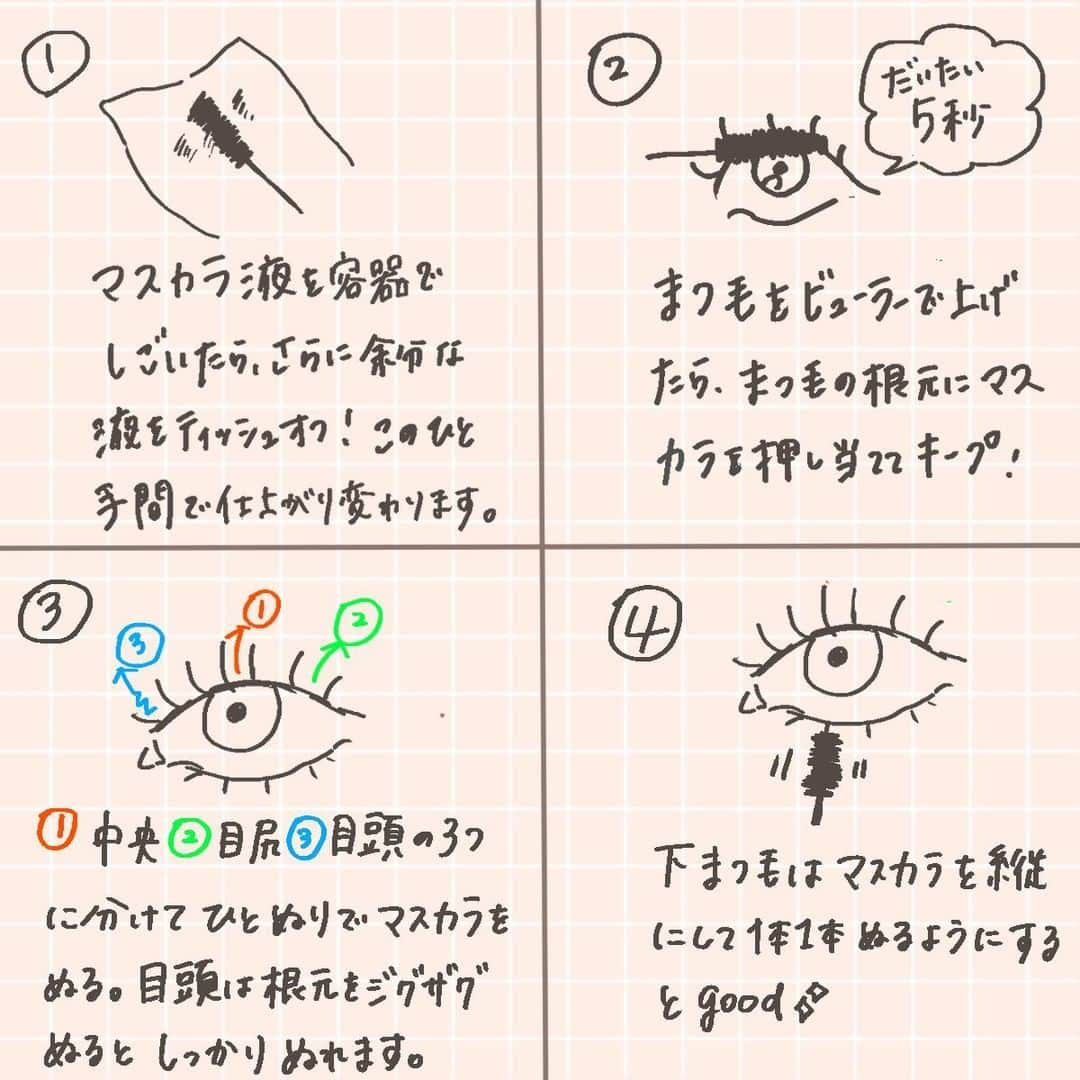 ①
マスカラ液を容器で
しごいたら、さらに余分な
液をティッシュオフ！このひと
手間で仕上がり変わります。
②
だいたい
5秒
まつ毛をビューラーで上げ
たら、まつ毛の根元にマス
カラを押し当ててキープ！
③
①
②
③
①中央②目尻③目頭の3つ
に分けてひとぬりでマスカラを
ぬる。目頭は根元をジグザグ
ぬるとしっかりぬれます。
④
下まつ毛はマスカラを縦
にして1本1本ぬるようにする
とgood